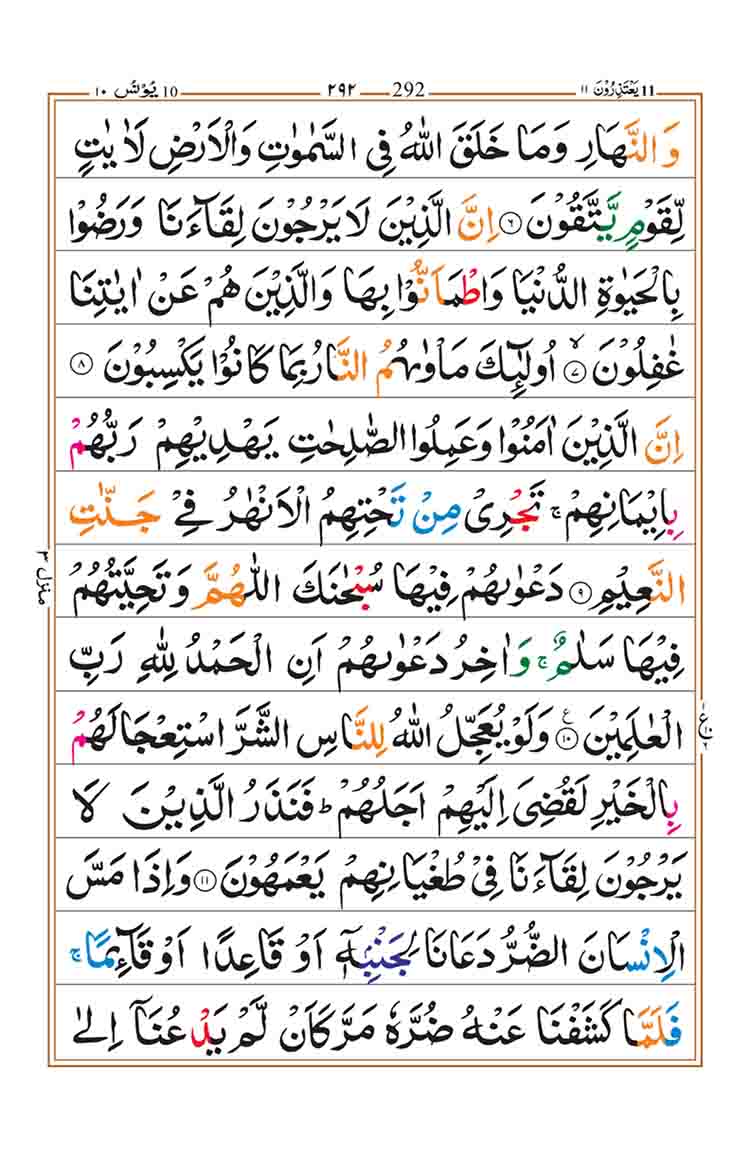 11 يَعْتَذِرُوْنَ ١١ 292 ٢٩٢ 10 يُوْنُس ١٠
وَ النَّهَارِ وَمَا خَلَقَ اللّٰهُ فِى السَّمٰوٰتِ وَالْاَرْضِ لَاٰيٰتٍ
لِّقَوْمٍ يَّتَّقُوْنَ ۝٦ اِنَّ الَّذِيْنَ لَا يَرْجُوْنَ لِقَآءَنَا وَرَضُوْا
بِالْحَيٰوةِ الدُّنْيَا وَاطْمَاَنُّوْا بِهَا وَالَّذِيْنَ هُمْ عَنْ اٰيٰتِنَا
غٰفِلُوْنَ ۝٧ۙ اُولٰٓئِكَ مَاْوٰىهُمُ النَّارُ بِمَا كَانُوْا يَكْسِبُوْنَ ۝٨
اِنَّ الَّذِيْنَ اٰمَنُوْا وَعَمِلُوا الصّٰلِحٰتِ يَهْدِيْهِمْ رَبُّهُمْ
بِاِيْمَانِهِمْ ۚ تَجْرِىْ مِنْ تَحْتِهِمُ الْاَنْهٰرُ فِىْ جَنّٰتِ
النَّعِيْمِ ۝٩ دَعْوٰىهُمْ فِيْهَا سُبْحٰنَكَ اللّٰهُمَّ وَتَحِيَّتُهُمْ
منزل ٣
فِيْهَا سَلٰمٌ ۚ وَاٰخِرُ دَعْوٰىهُمْ اَنِ الْحَمْدُ لِلّٰهِ رَبِّ
الْعٰلَمِيْنَ ۝١٠ࣖ وَلَوْ يُعَجِّلُ اللّٰهُ لِلنَّاسِ الشَّرَّ اسْتِعْجَالَهُمْ
بِالْخَيْرِ لَقُضِىَ اِلَيْهِمْ اَجَلُهُمْ ؕ فَنَذَرُ الَّذِيْنَ لَا
يَرْجُوْنَ لِقَآءَنَا فِىْ طُغْيَانِهِمْ يَعْمَهُوْنَ ۝١١ وَاِذَا مَسَّ
الْاِنْسَانَ الضُّرُّ دَعَانَا لِجَنْۢبِهٖۤ اَوْ قَاعِدًا اَوْ قَآئِمًا ۚ
فَلَمَّا كَشَفْنَا عَنْهُ ضُرَّهٗ مَرَّ كَاَنْ لَّمْ يَدْعُنَاۤ اِلٰى